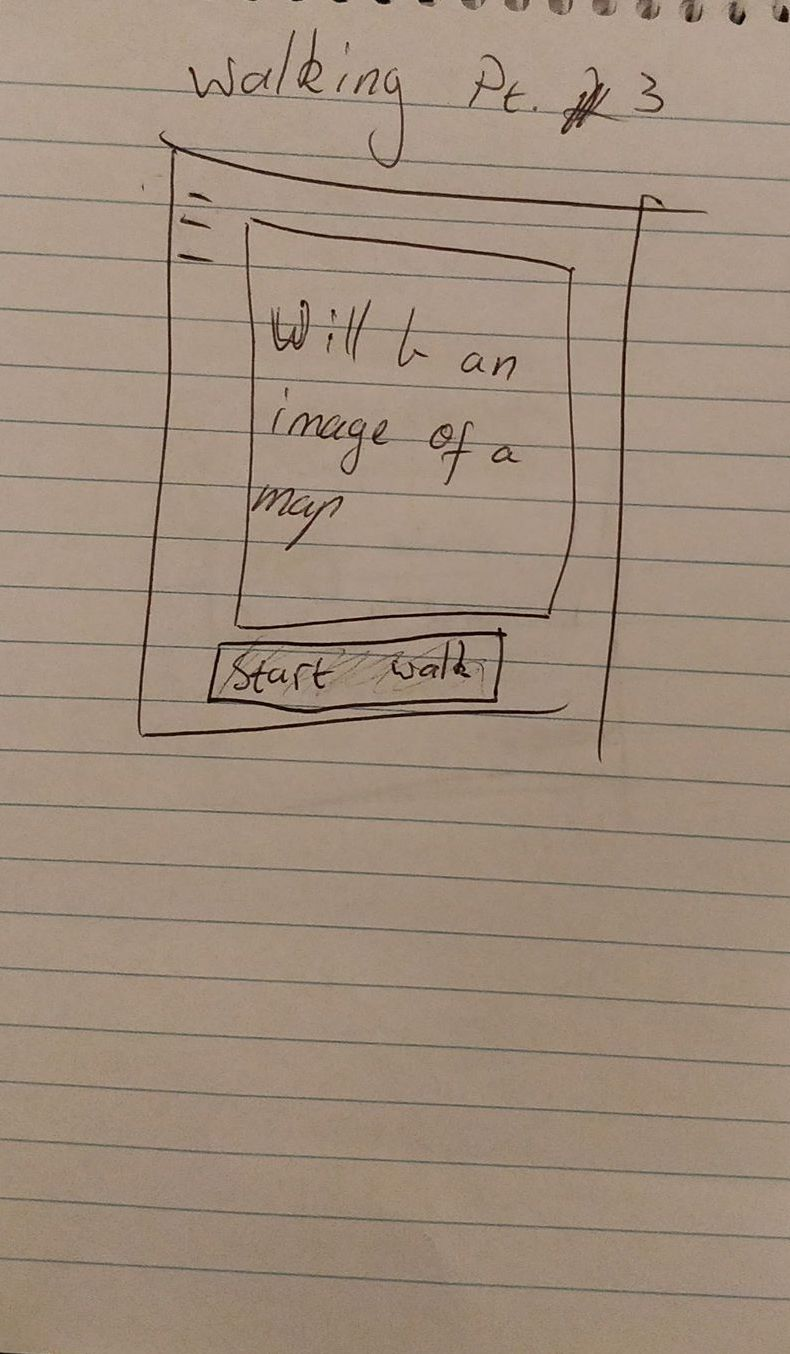 Walking Pt. 3
Will b an
image of a
map
Start walk